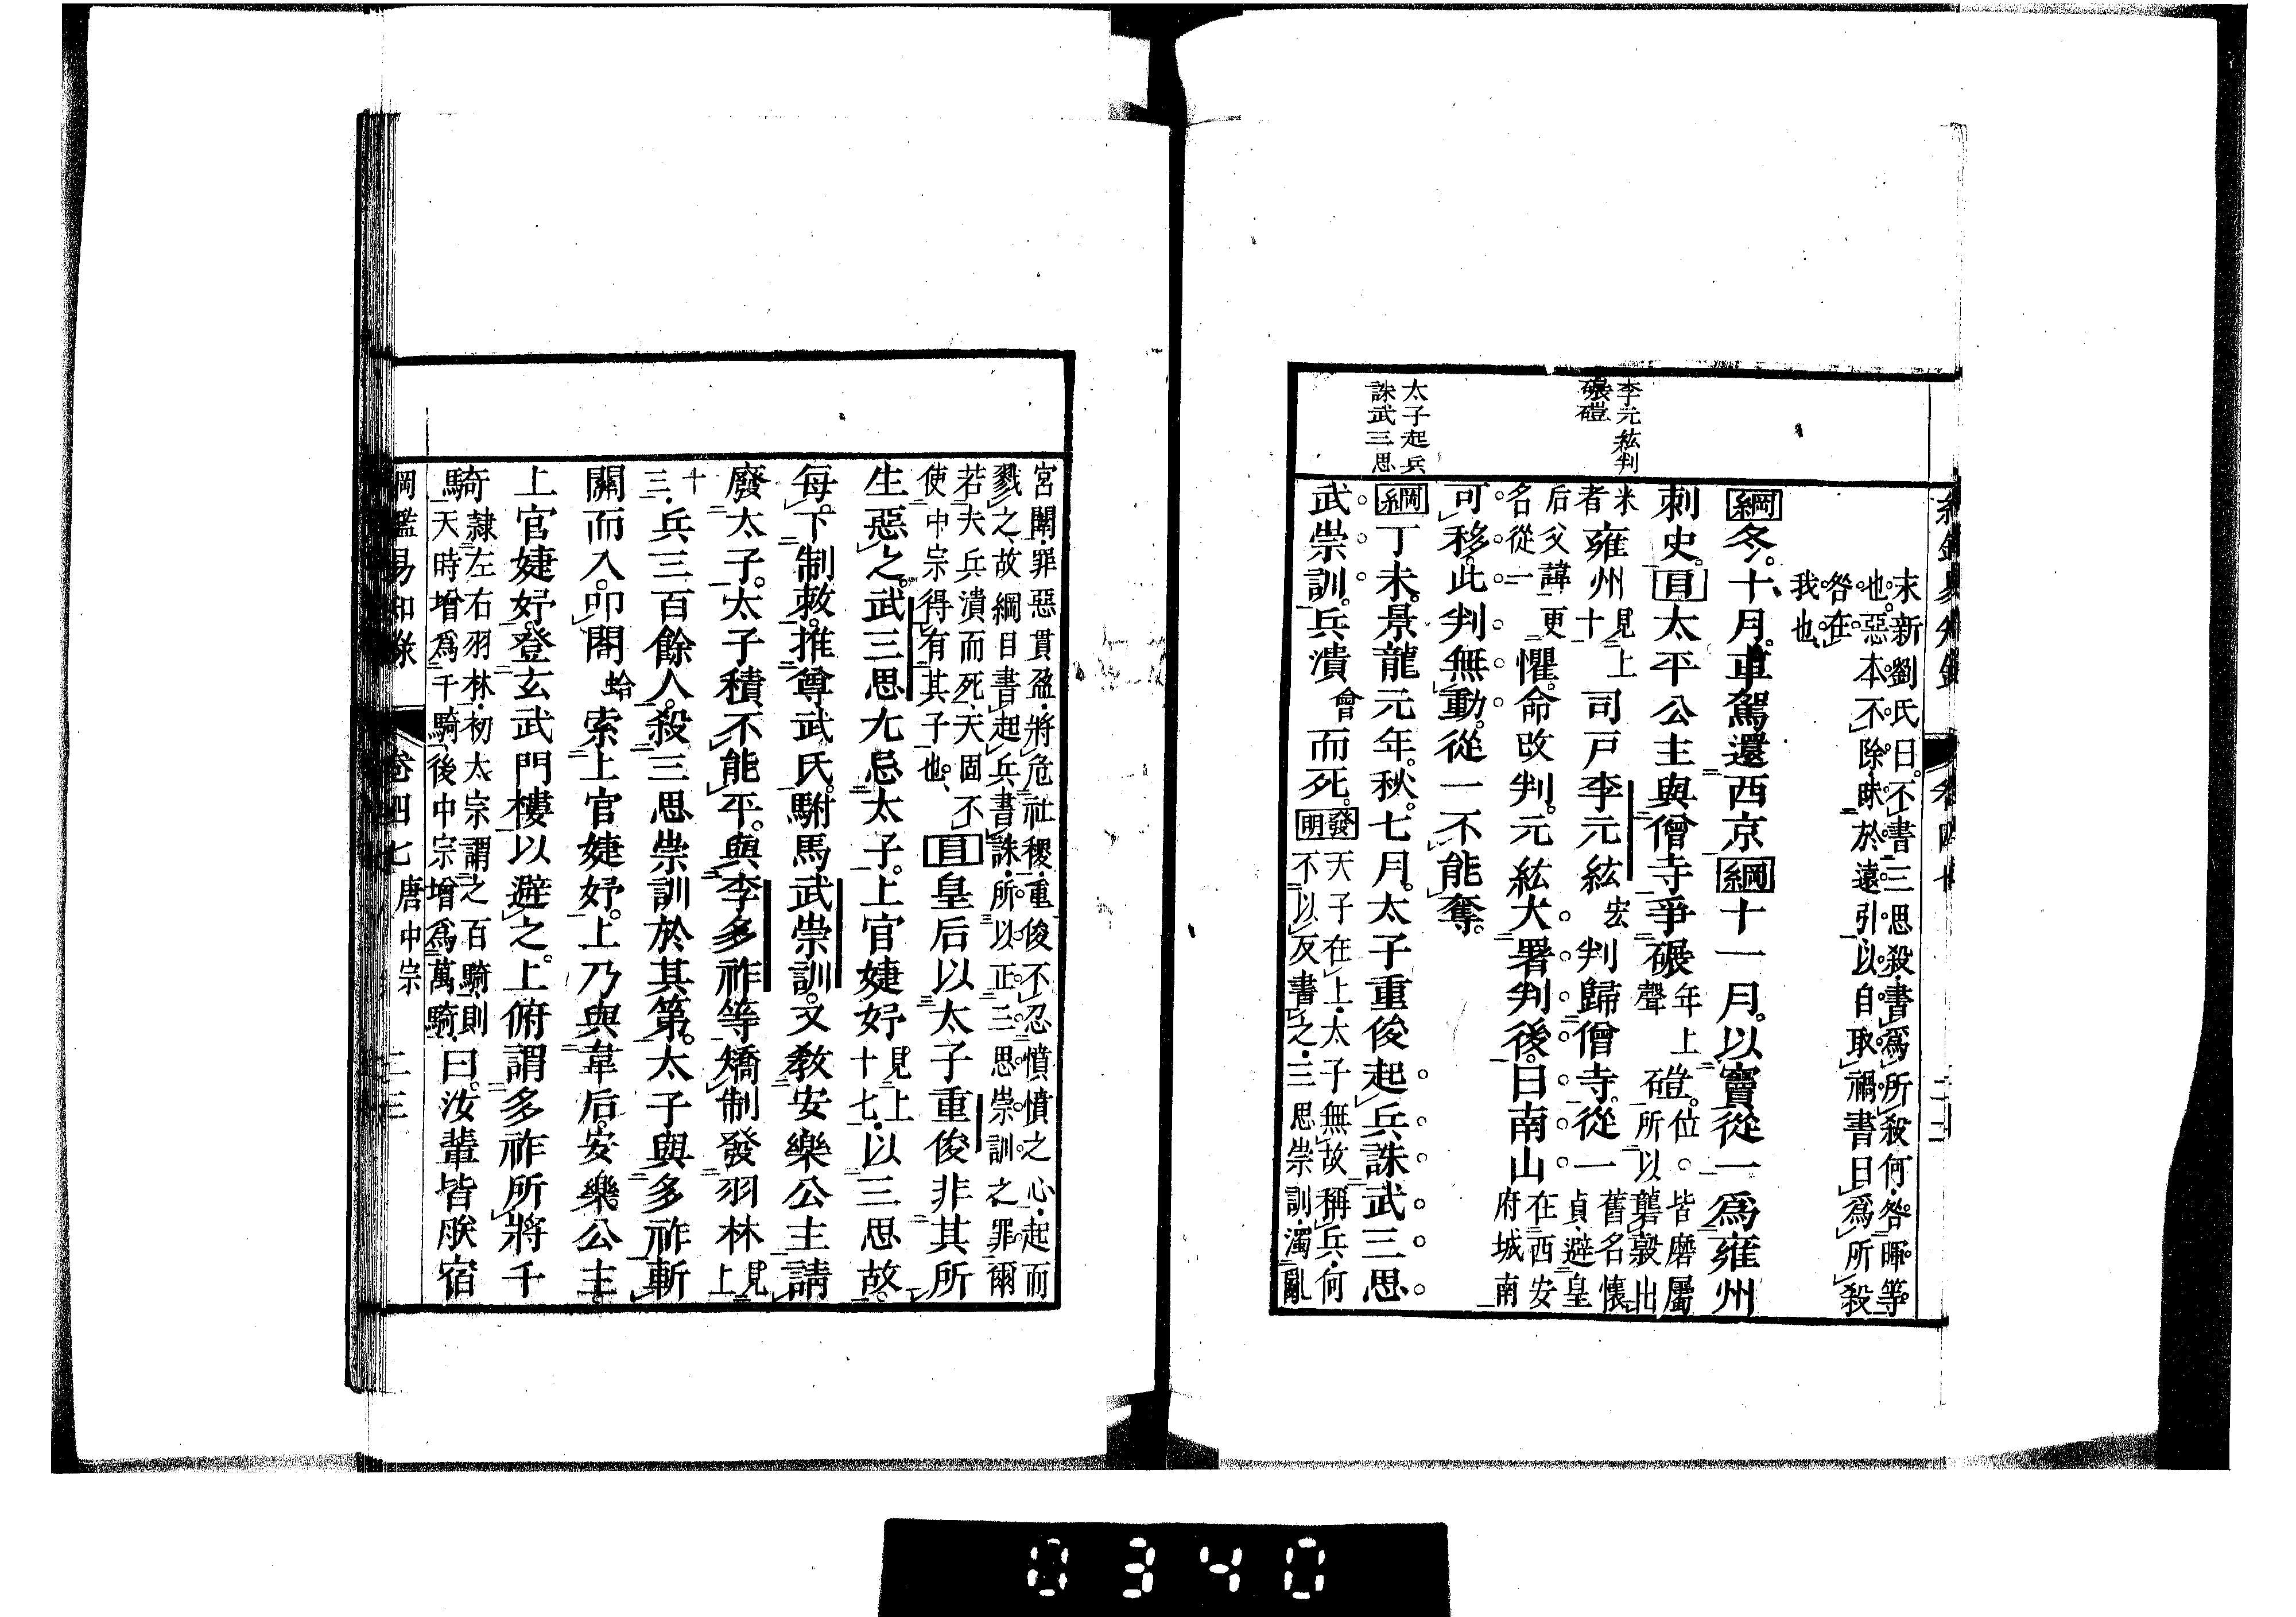 末新劉氏曰不書三思殺書爲所殺何咎暉等
也惡本不除昧於遠引以自取禍書曰爲所殺
咎在
我也
綱冬十月車駕還西京綱十一月以竇從一爲雍州
刺史目太平公主與僧寺爭碾年上聲磑位所以皆磨屬礱穀出
米者雍州見上十司戸李元紘宏判歸僧寺從一舊名懷貞避皇
后父諱更名從一懼命改判元紘大署判後曰南山在西安府城南
可移此判無動從一不能奪
綱丁未景龍元年秋七月太子重俊起兵誅武三思
武崇訓兵潰會而死發明天子在上太子無故稱兵何不以反書之三思崇訓濁亂
李元紘判
碾磑
太子起兵
誅武三思
宮闈罪惡貫盈將危社稷重俊不忍憤憤之心起而
戮之故綱目書起兵書誅所以正三思崇訓之罪爾
若夫兵潰而死天固不
使中宗得有其子也目皇后以太子重俊非其所
生惡之武三思尤忌太子上官婕妤見上十七以三思故
每下制敕推尊武氏駙馬武崇訓又敎安樂公主請
廢太子太子積不能平與李多祚等矯制發羽林見上
十三兵三百餘人殺三思崇訓於其第太子與多祚斬
關而入叩閤蛤索上官婕妤上乃與韋后安樂公主
上官婕妤登玄武門樓以避之上俯謂多祚所將千
騎隷左右羽林初太宗謂之百騎則天時增爲千騎後中宗增爲萬騎曰汝輩皆朕宿
綱鑑易知錄 卷四七 唐中宗 二三